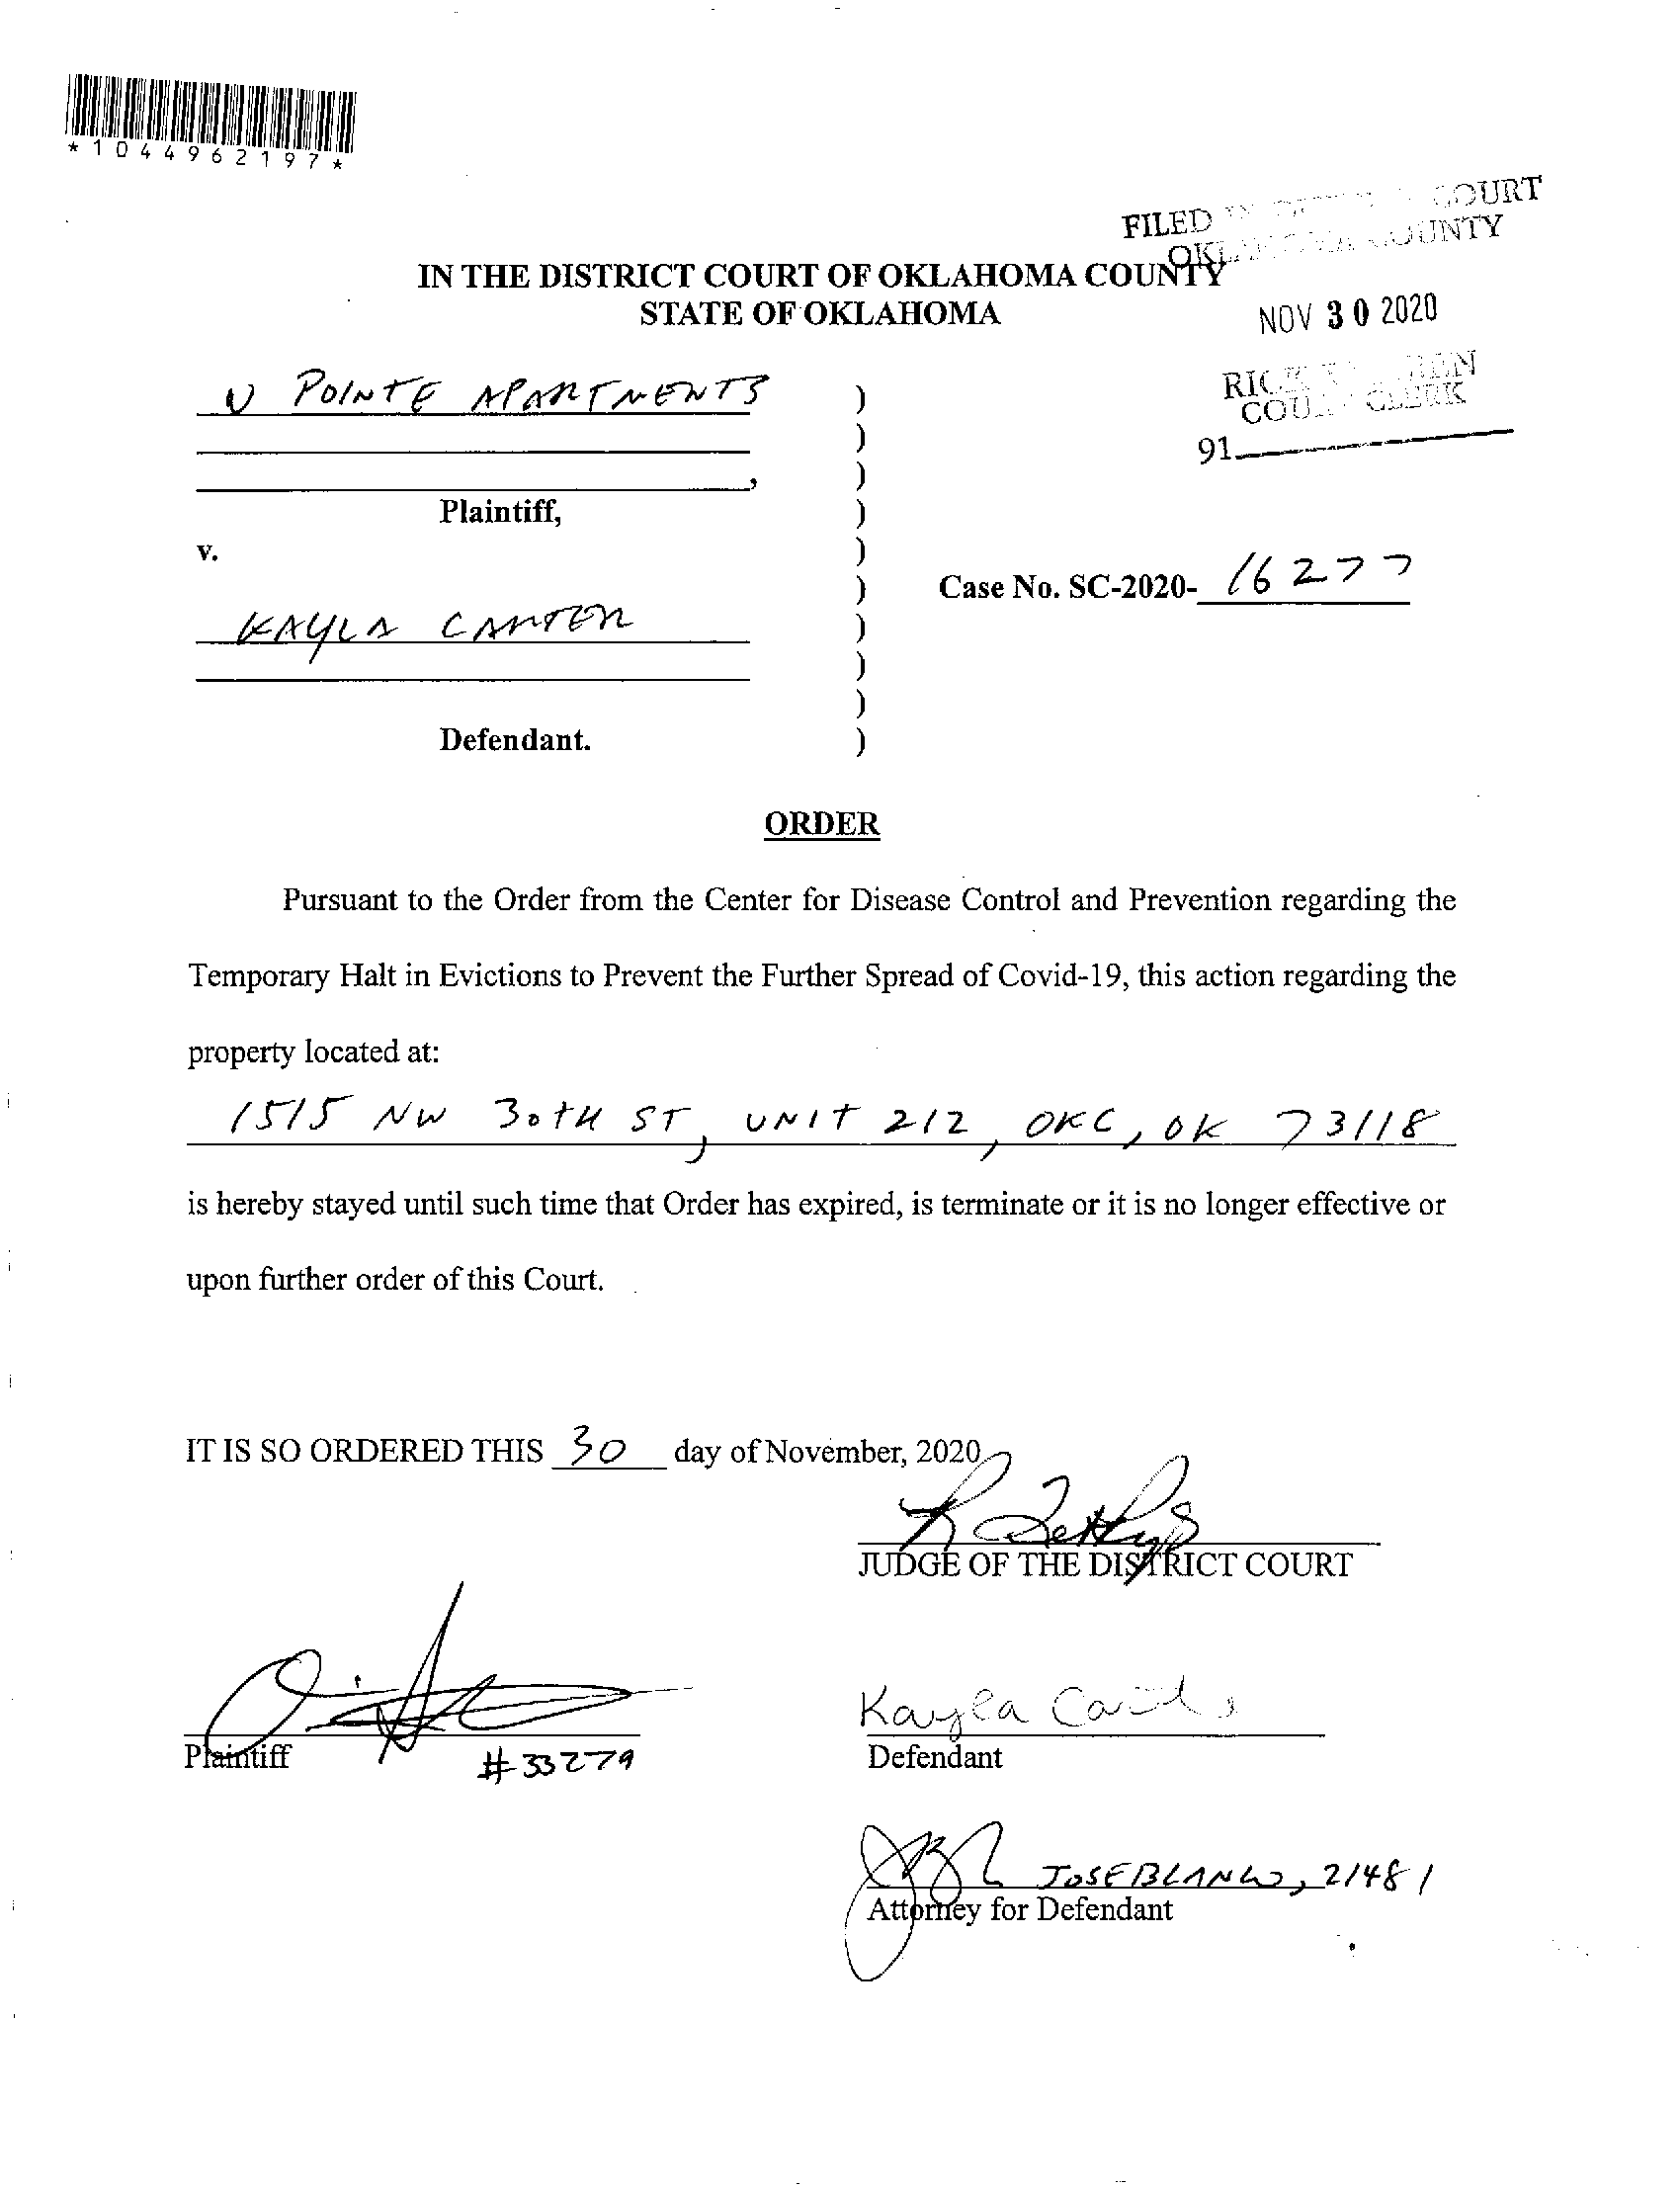 *1044962197*
FILED COURT
COUNTY
IN THE DISTRICT COURT OF OKLAHOMA COUNTY
STATE OF OKLAHOMA
NOV 30 2020
U POINTE APARTMENTS )
)
, )
Plaintiff, )
v. )
Case No. SC-2020- 16277
)
KAYLA CARTER )
)
)
Defendant. )
COUNTY CLERK
91
ORDER
Pursuant to the Order from the Center for Disease Control and Prevention regarding the
Temporary Halt in Evictions to Prevent the Further Spread of Covid-19, this action regarding the
property located at:
1515 NW 30TH ST, UNIT 212, OKC, OK 73118
is hereby stayed until such time that Order has expired, is terminate or it is no longer effective or
upon further order of this Court.
IT IS SO ORDERED THIS 30 day of November, 2020
JUDGE OF THE DISTRICT COURT
Plaintiff #33279
Kayla Carter
Defendant
JOSE BLANCO, 21481
Attorney for Defendant